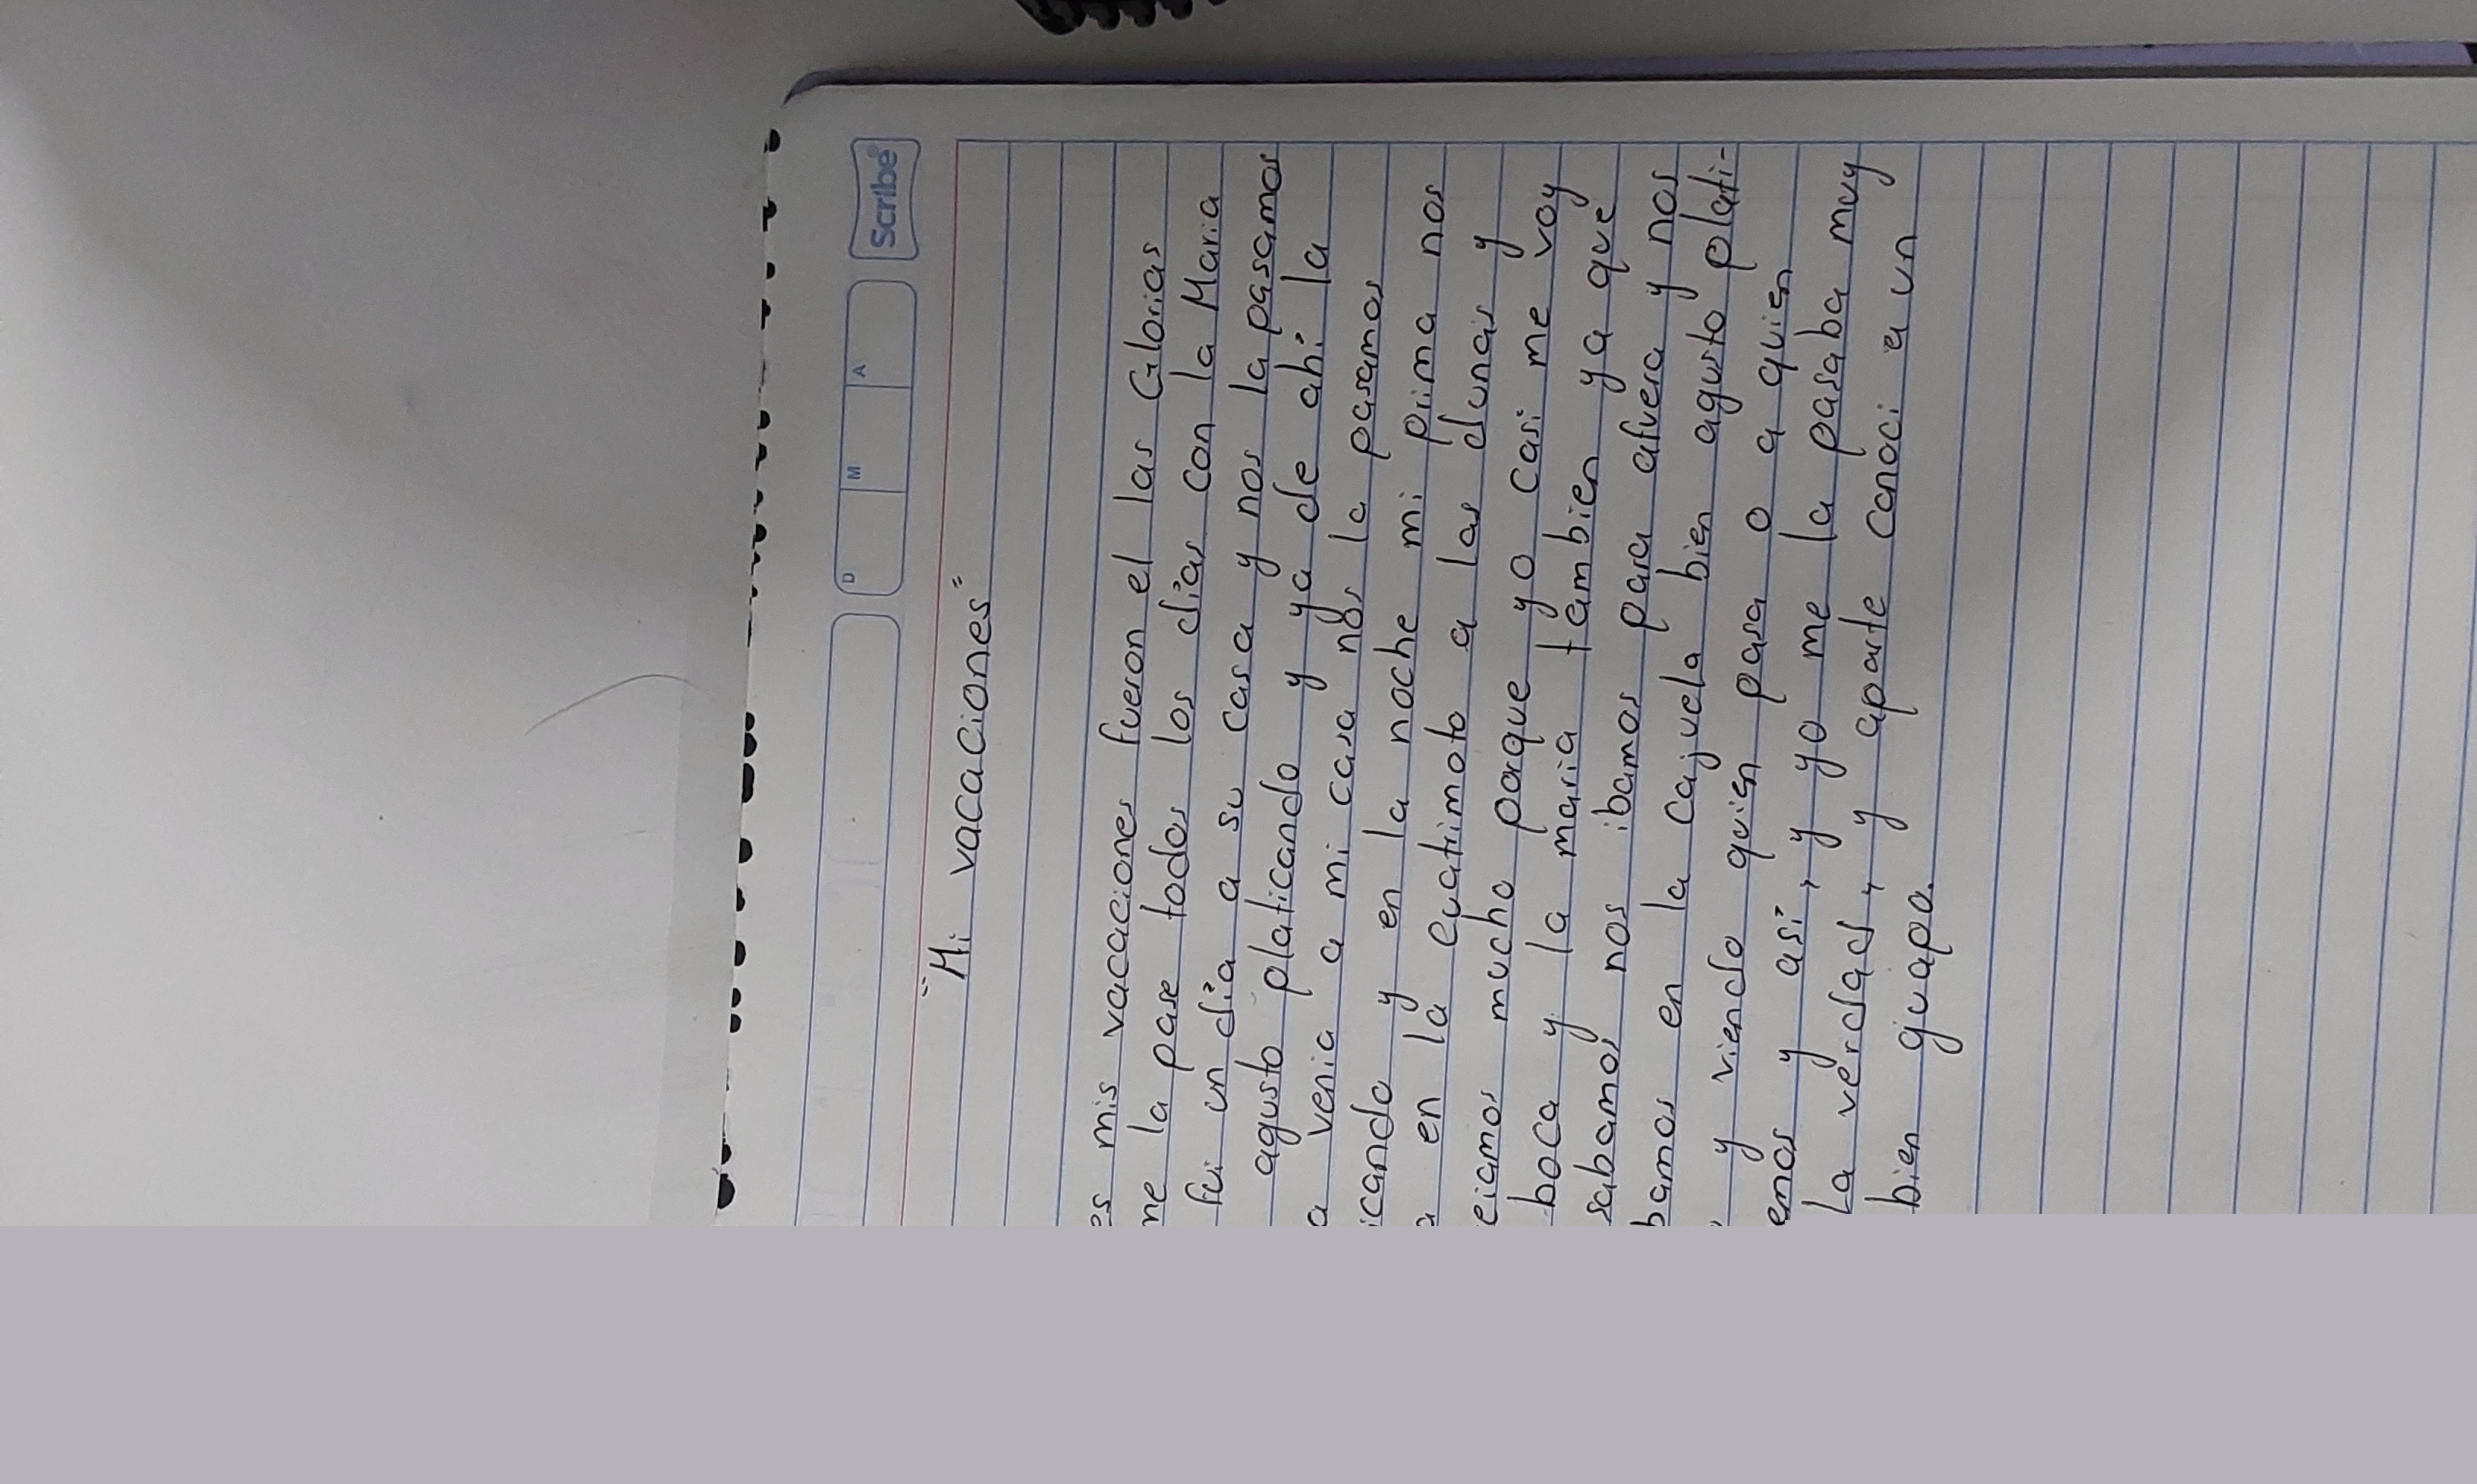 Scribe
D M A
"Mi vacaciones"
es mis vacaciones fueron el las Glorias
me la pase todos los días con la Maria
fui un día a su casa y nos la pasamos
agusto platicando y ya de ahí la
a venia a mi casa nos la pasamos
icando y en la noche mi prima nos
a en la cuatrimoto a las dunas y
eiamos mucho porque yo casi me voy
boca y la maria tambien ya que
sabamos nos ibamos para afuera y nos
bamos en la cajuela bien agusto plati-
y viendo quien pasa o a quien
emos y así, y yo me la pasaba muy
La verdad, y aparte conoci a un
bien guapo.